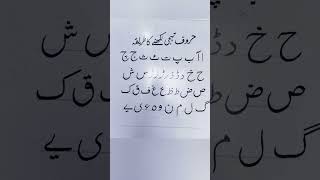 حروف تہجی لکھنے کا طریقہ
ا آ ب پ ت ٹ ث ج چ
ح خ د ڈ ذ ر ڑ ز ژ س ش
ص ض ط ظ ع غ ف ق ک
گ ل م ن و ہ ء ی ے